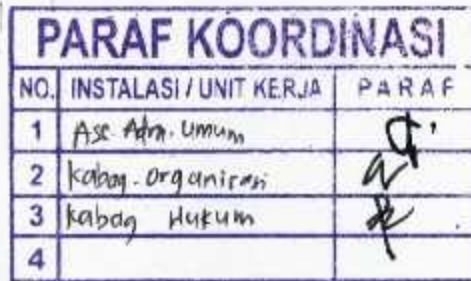 PARAF KOORDINASI
NO. INSTALASI / UNIT KERJA PARAF
1 Ass. Adm. Umum
2 Kabag. Organisasi
3 Kabag Hukum
4